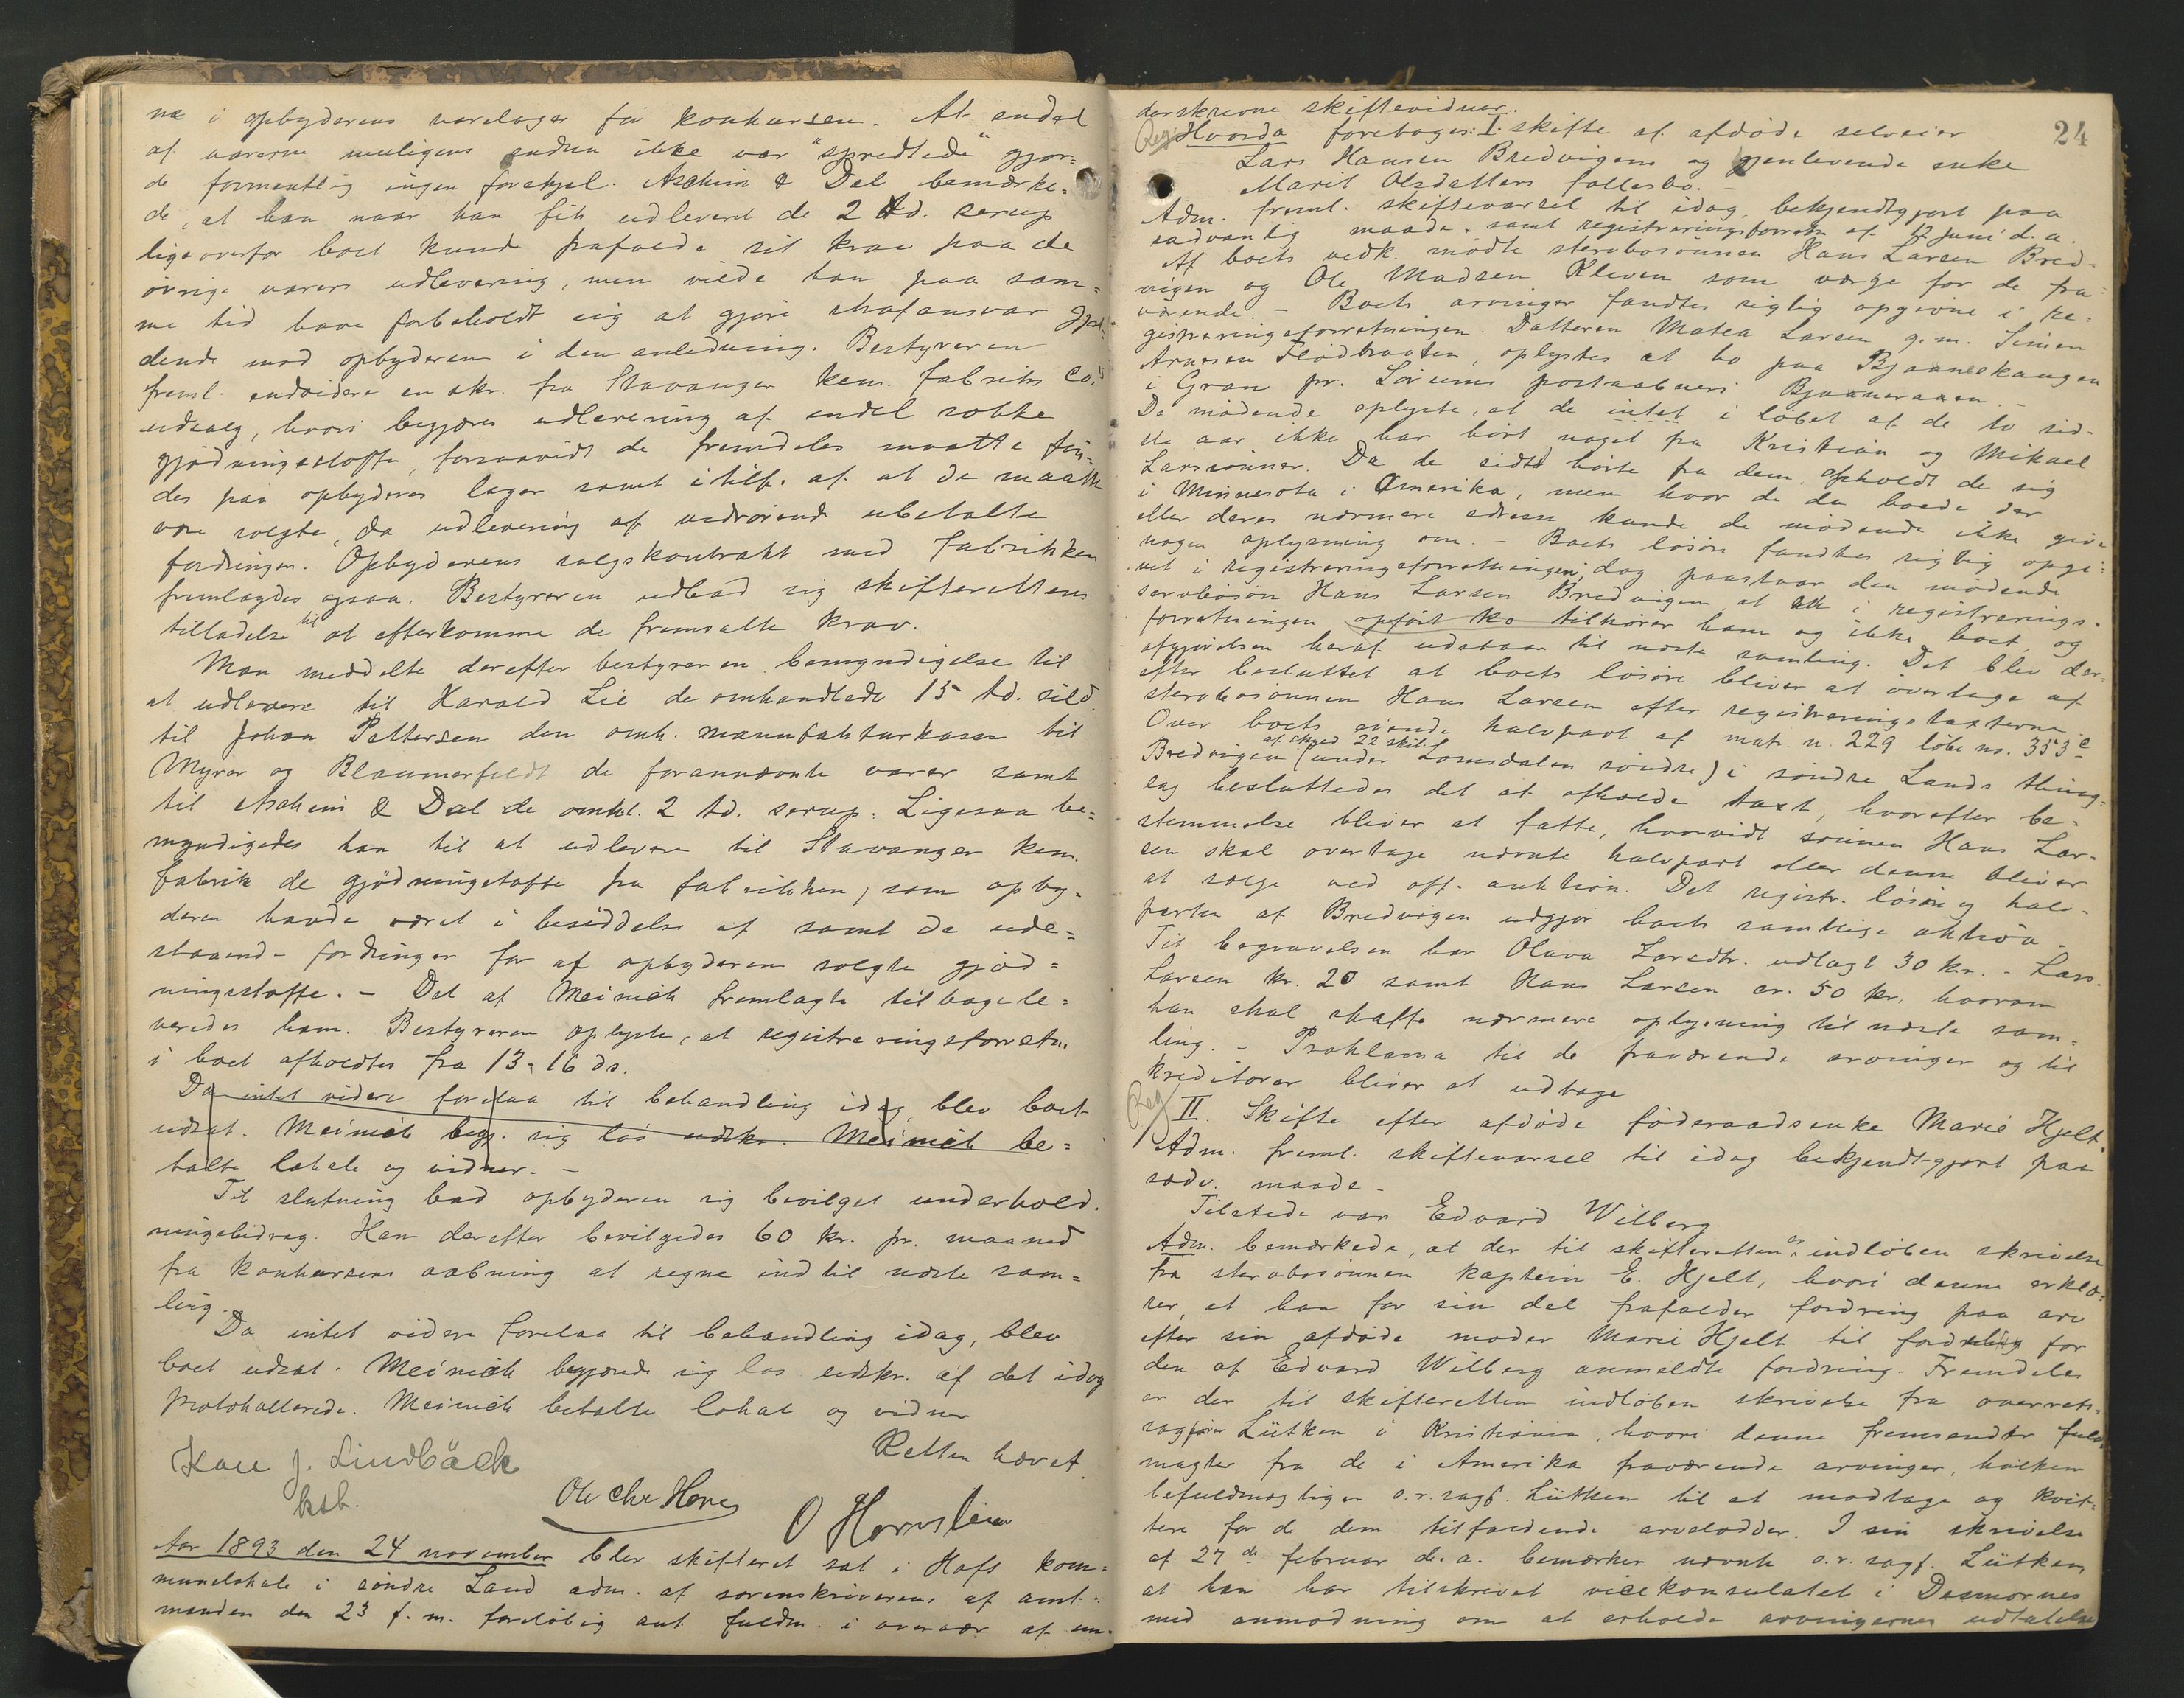 ne i opbyderens varelager før konkursen. At endel
af varerne muligens endnu ikke var "spredtede" gjor=
de formentlig ingen forskjel. Aschim & Dal bemærke=
de, at han naar han fik udleveret de 2 td. serup
ligeoverfor boet kunde frafalde sit krav paa de
øvrige varers udlevering, men vilde han paa sam=
me tid have forbeholdt sig at gjøre strafansvar gjæl=
dende mod opbyderen i den anledning. Bestyreren
freml. endvidere en skr. fra Stavanger kem. fabriks Co.s
udsalg, hvori begjæres udlevering af endel solgte
gjødningsstoffe, forsaavidt de fremdeles maatte fin=
des paa opbyderes lager samt i tilf. af at de maatte
være solgte, da udlevering af vedrørende ubetalte
fordringer. Opbyderens salgskontrakt med fabrikken
fremlagdes ogsaa. Bestyreren udbad sig skifterettens
tilladelse til at efterkomme de fremsatte krav.
Man meddelte derefter bestyreren bemyndigelse til
at udlevere til Harald Lie de omhandlede 15 td. sild.
til Johan Pettersen den omh. manufakturkasse til
Myrer og Blaumerfeldt de forannævnte varer samt
til Aschim & Dal de omhl. 2 td. serup. Ligesaa be=
myndigedes han til at udlevere til Stavanger kem.
fabrik de gjødningstoffe fra fabrikken, som opby=
deren havde været i besiddelse af samt de ude=
staaende fordringer for af opbyderen solgte gjød=
ningsstoffe. - Det af Meinich fremlagte tilbagele=
veredes ham. Bestyreren oplyste, at registreringsforretn.
i boet afholdtes fra 13-16 ds.
Da intet videre forelaa til behandling idag, blev boet
udsat. Meinich begj. sig løs udskr. Meinich be=
talte lokale og vidner. -
Til slutning bad opbyderen sig bevilget underhold.
ningsbidrag. Han derefter bevilgedes 60 kr. pr. maaned
fra konkursens aabning at regne indtil næste sam=
ling.
Da intet videre forelaa til behandling idag, blev
boet udsat. Meinich begjærede sig løs udskr. af det idag
protokollerede. Meinich betalte lokale og vidner
Retten hævet.
J. Lindbäck
kst.
Ole Chr Hov
O Hornslien
Aar 1893 den 24 november blev skifteret sat i Hofs kom=
munelokale i søndre Land adm. af sorenskriverens af amt=
manden den 23 f. m. foreløbig ant. fuldm. i overvær af un=
24
derskrevne skiftevidner.
Reg Hvorda foretoges: I. skifte af afdøde selveier
Lars Hansen Bredvigens og gjenlevende enke
Marit Olsdatters fællesbo. -
Adm. freml. skiftevarsel til idag, bekjendtgjort paa
sædvanlig maade, samt registreringsforretn. af 12 juni d. a.
Af boets vedk. mødte sterbosønnen Hans Larsen Bred=
vigen og Ole Madsen Kleven som værge for de fra=
værende. - Boets arvinger fandtes rigtig opgivne i re=
gistreringsforretningen. Datteren Matea Larsen g. m. Simen
Arnesen Flødbraaten, oplystes at bo paa Bjaaneskaugen
i Gran pr. Lørums postaabneri Bjoneraaen. -
De mødende oplyste, at de intet i løbet af de to sid=
ste aar ikke har hørt noget fra Kristian og Mikael
Larssønner. Da de sidst hørte fra dem, opholdt de sig
i Minnesota i Amerika, men hvor de da boede der
eller deres nærmere adresse kunde de mødende ikke give
nogen oplysning om. - Boets løsøre fandtes rigtig opgi=
vet i registreringsforretningen; dog paastaar den mødende
servbosøn Hans Larsen Bredvigen, at en i registrerings=
forretningen opført ko tilhører ham og ikke boet, og
afgjørelsen heraf udstaar til næste samling. Det blev der=
efter besluttet at boets løsøre bliver at overtage af
sterbosønnen Hans Larsen efter registreringstaxterne.
Over boets eiende halvpart af matr. n. 229 løbe no. 353 c
Bredvigen (under Lomsdalen søndre) af skyld 22 skil. i søndre Lands thing=
lag besluttedes det at afholde taxt, hvorefter be=
stemmelse bliver at fatte, hvorvidt sønnen Hans Lar=
sen skal overtage nævnte halvpart eller denne bliver
at sælge ved off. auktion. Det registr. løsøre og halv=
parten af Bredvigen udgjør boets samtlige aktiva. -
Til begravelsen har Olava Larsdtr. udlagt 30 kr. - Lars
Larsen kr. 20 samt Hans Larsen cr. 50 kr., hvorom
han skal skaffe nærmere oplysning til næste sam=
ling. - Proklama til de fraværende arvinger og til
kreditorer bliver at udtage
Reg II. Skifte efter afdøde føderaadsenke Marie Hjelt.
Adm. freml. skiftevarsel til idag bekjendtgjort paa
sædv. maade -
Tilstede var Edvard Wilberg.
Adm. bemærkede, at der til skifteretten er indløben skrivelse
fra sterbosønnen kaptein E. Hjelt, hvori denne erklæ=
rer, at han for sin del frafalder fordring paa arv
efter sin afdøde moder Marie Hjelt til ford for
den af Edvard Wilberg anmeldte fordring. Fremdeles
er der til skifteretten indløben skrivelse fra overrets=
sagfører Lütken i Kristiania, hvori denne fremsendte fuld=
magter fra de i Amerika fraværende arvinger, hvilken
befuldmægtiger o.r.sagf. Lütken til at modtage og kvit=
tere for de dem tilfaldende arvelodder. I sin skrivelse
af 27de februar d. a. bemærker nævnte o.r.sagf. Lütken,
at han har tilskrevet vicekonsulatet i Desmornes
med anmodning om at erholde arvingernes udtalelse